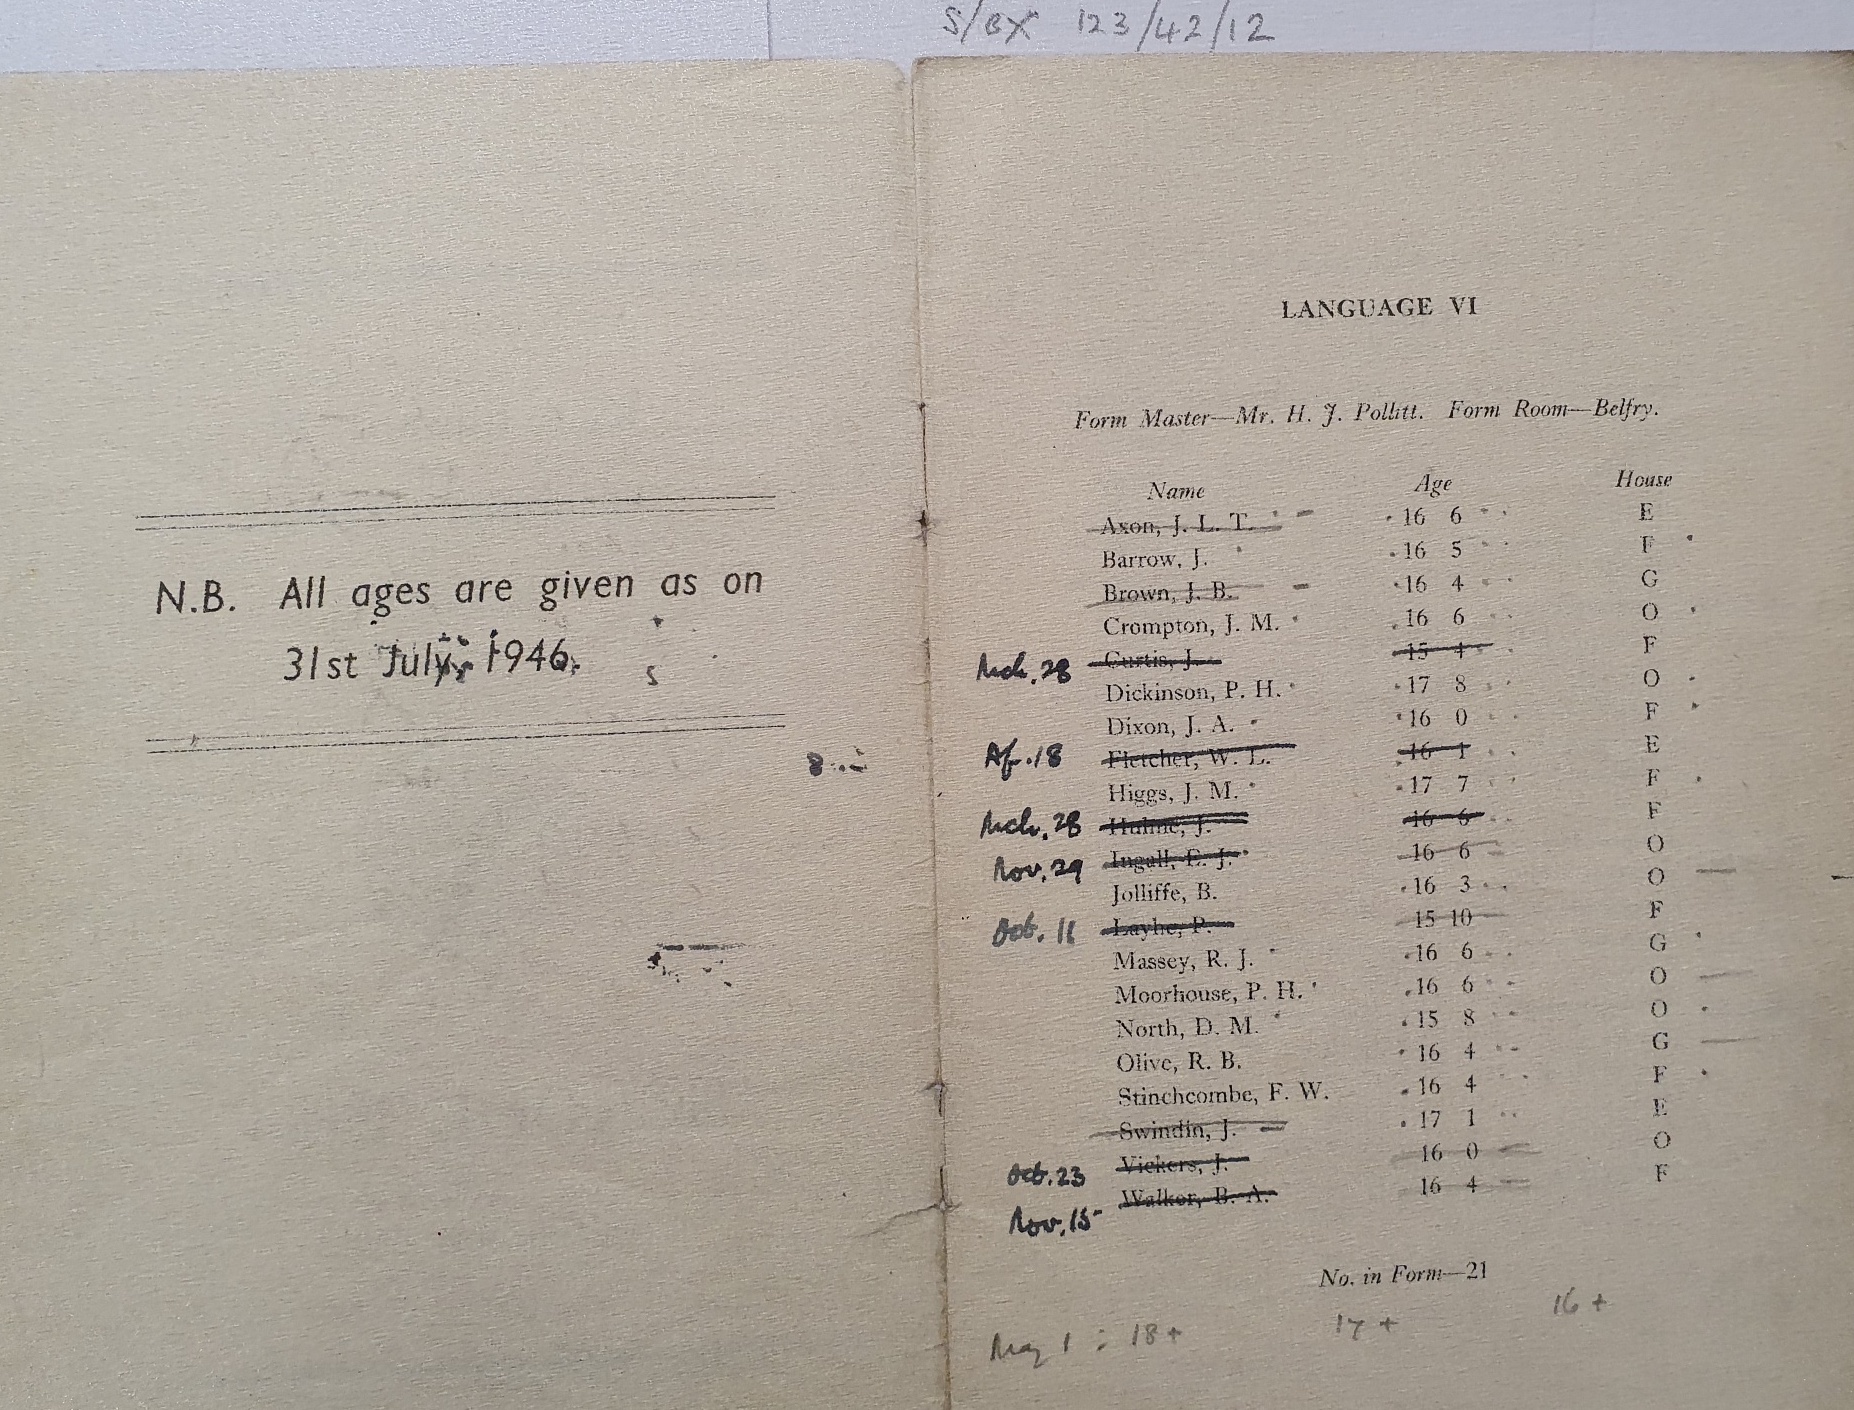 S/BX 123/42/12
N.B. All ages are given as on
31st July, 1946.
LANGUAGE VI
Form Master—Mr. H. J. Pollitt. Form Room—Belfry.
Name Age House
Axon, J. L. T. 16 6 E
Barrow, J. 16 5 F
Brown, J. B. 16 4 G
Crompton, J. M. 16 6 O
Mch. 28 Curtis, J. 15 4 F
Dickinson, P. H. 17 8 O
Dixon, J. A. 16 0 F
Ap. 18 Fletcher, W. L. 16 1 E
Higgs, J. M. 17 7 F
Mch. 28 Hulme, J. 16 6 F
Nov. 29 Ingall, E. J. 16 6 O
Jolliffe, B. 16 3 O
Oct. 11 Layhe, P. 15 10 F
Massey, R. J. 16 6 G
Moorhouse, P. H. 16 6 O
North, D. M. 15 8 O
Olive, R. B. 16 4 G
Stinchcombe, F. W. 16 4 F
Swindin, J. 17 1 E
Oct. 23 Vickers, J. 16 0 O
Nov. 15 Walker, B. A. 16 4 F
No. in Form—21
May 1 : 18+ 17+ 16+